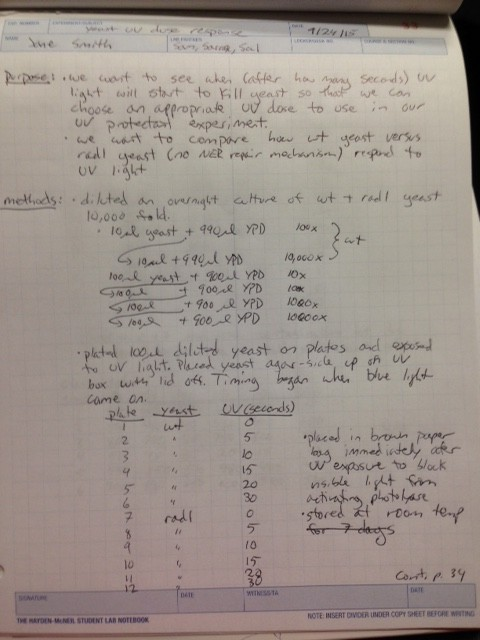 EXP. NUMBER EXPERIMENT/SUBJECT yeast UV dose response DATE 9/24/15 33
NAME Jane Smith LAB PARTNER Sam, Sarag, Sal LOCKER/DESK NO. COURSE & SECTION NO.
Purpose: • we want to see when (after how many seconds) UV
light will start to kill yeast so that we can
choose an appropriate UV dose to use in our
UV protectant experiment.
• we want to compare how wt yeast versus
rad1 yeast (no NER repair mechanism) respond to
UV light
methods: • diluted an overnight culture of wt + rad1 yeast
10,000 fold.
• 10µl yeast + 990µl YPD 100x
10µl + 990µl YPD 10,000x } wt
100µl yeast + 900µl YPD 10x
100µl + 900µl YPD 100x
100µl + 900µl YPD 1000x
100µl + 900µl YPD 10000x
• plated 100µl diluted yeast on plates and exposed
to UV light. Placed yeast agar-side up on UV
box with lid off. Timing began when blue light
came on.
plate yeast UV (seconds)
1 wt 0
2 " 5 • placed in brown paper
3 " 10 bag immediately after
4 " 15 UV exposure to block
5 " 20 visible light from
6 " 30 activating photolyase
7 rad1 0 • stored at room temp
8 " 5 for 7 days
9 " 10
10 " 15
11 " 20
12 " 30 Cont. p. 34
SIGNATURE DATE WITNESS/TA DATE
THE HAYDEN-McNEIL STUDENT LAB NOTEBOOK NOTE: INSERT DIVIDER UNDER COPY SHEET BEFORE WRITING